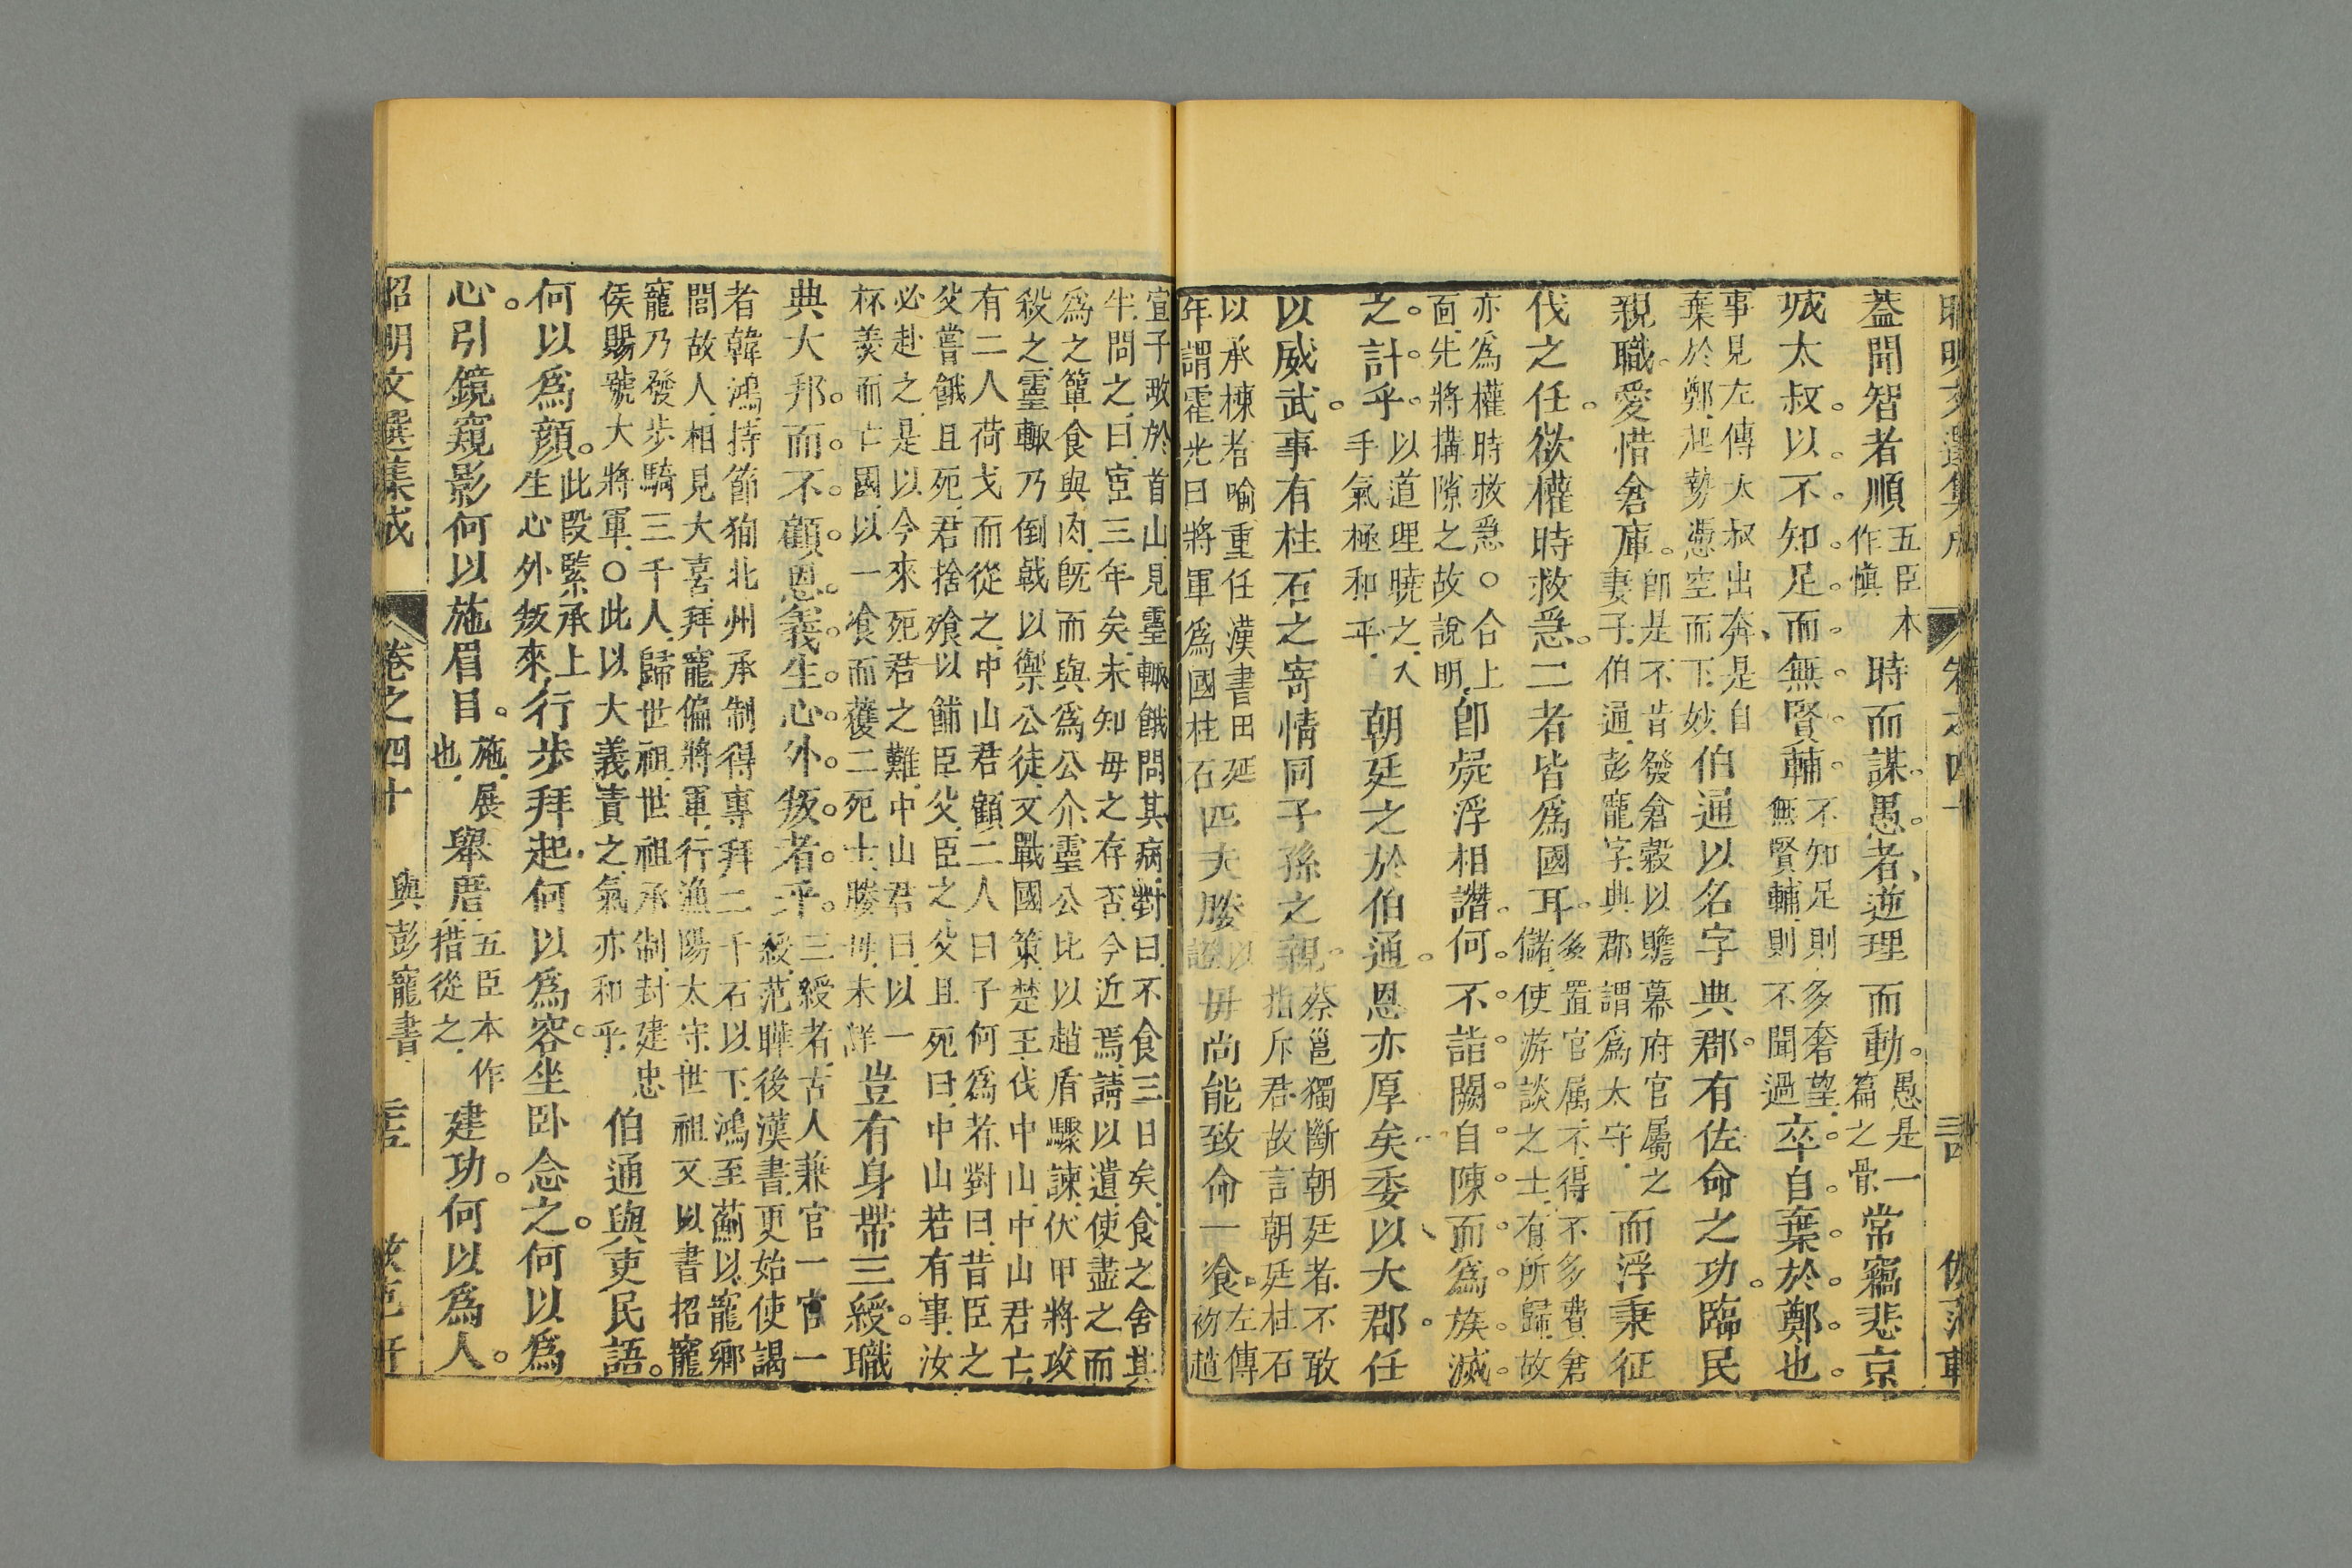 蓋聞智者順五臣本作愼時而謀愚者逆理而動愚是一篇之骨常竊悲京
城太叔以不知足而無賢輔不知足則多奢望無賢輔則不聞過卒自棄於鄭也
事見左傳大叔出奔是自棄於鄭起勢憑空而下妙伯通以名字典郡有佐命之功臨民
親職愛惜倉庫卽是不昔發倉穀以贍幕府官屬之妻子伯通彭寵字典郡謂爲太守而浮秉征
伐之任欲權時救急二者皆爲國耳多置官属不得不多費倉儲使游談之士有所歸故
亦爲權時救急○合上面先將搆隙之故說明卽疑浮相譖何不詣闕自陳而爲族滅
之計乎以道理曉之入手氣極和平朝廷之於伯通恩亦厚矣委以大郡任
以威武事有柱石之寄情同子孫之親蔡邕獨斷朝廷者不敢指斥君故言朝廷柱石
以承棟者喩重任漢書田延年謂霍光曰將軍爲國柱石匹夫媵以證母尚能致命一飡左傳初趙
宣子畋於首山見靈輒餓問其病對曰不食三日矣食之舍其
半問之曰宦三年矣未知母之存否今近焉請以遺使盡之而
爲之簞食與肉旣而與爲公介靈公比以趙盾驟諫伏甲將攻
殺之靈輒乃倒戟以禦公徒又戰國策楚王伐中山中山君亡
有二人荷戈而從之中山君顧二人曰子何爲者對曰昔臣之
父嘗餓且死君捨飡以餔臣父臣之父且死曰中山若有事汝
必赴之是以今來死君之難中山君曰以一杯羹而亡國以一飡而獲二死士媵母未詳豈有身帶三綬職
典大邦而不顧恩義生心外叛者乎三綬者古人兼官一官一綬范曄後漢書更始使謁
者韓鴻持節狥北州承制得專拜二千石以下鴻至薊以寵鄉
閭故人相見大喜拜寵偏將軍行漁陽太守世祖又以書招寵
寵乃發步騎三千人歸世祖世祖承制封建忠
侯賜號大將軍○此以大義責之氣亦和平伯通與吏民語
何以爲顔此段緊承上生心外叛來行步拜起何以爲容坐卧念之何以爲
心引鏡窺影何以施眉目施展也舉厝五臣本作措從之建功何以爲人
昭明文選集成 卷之四十 與彭寵書